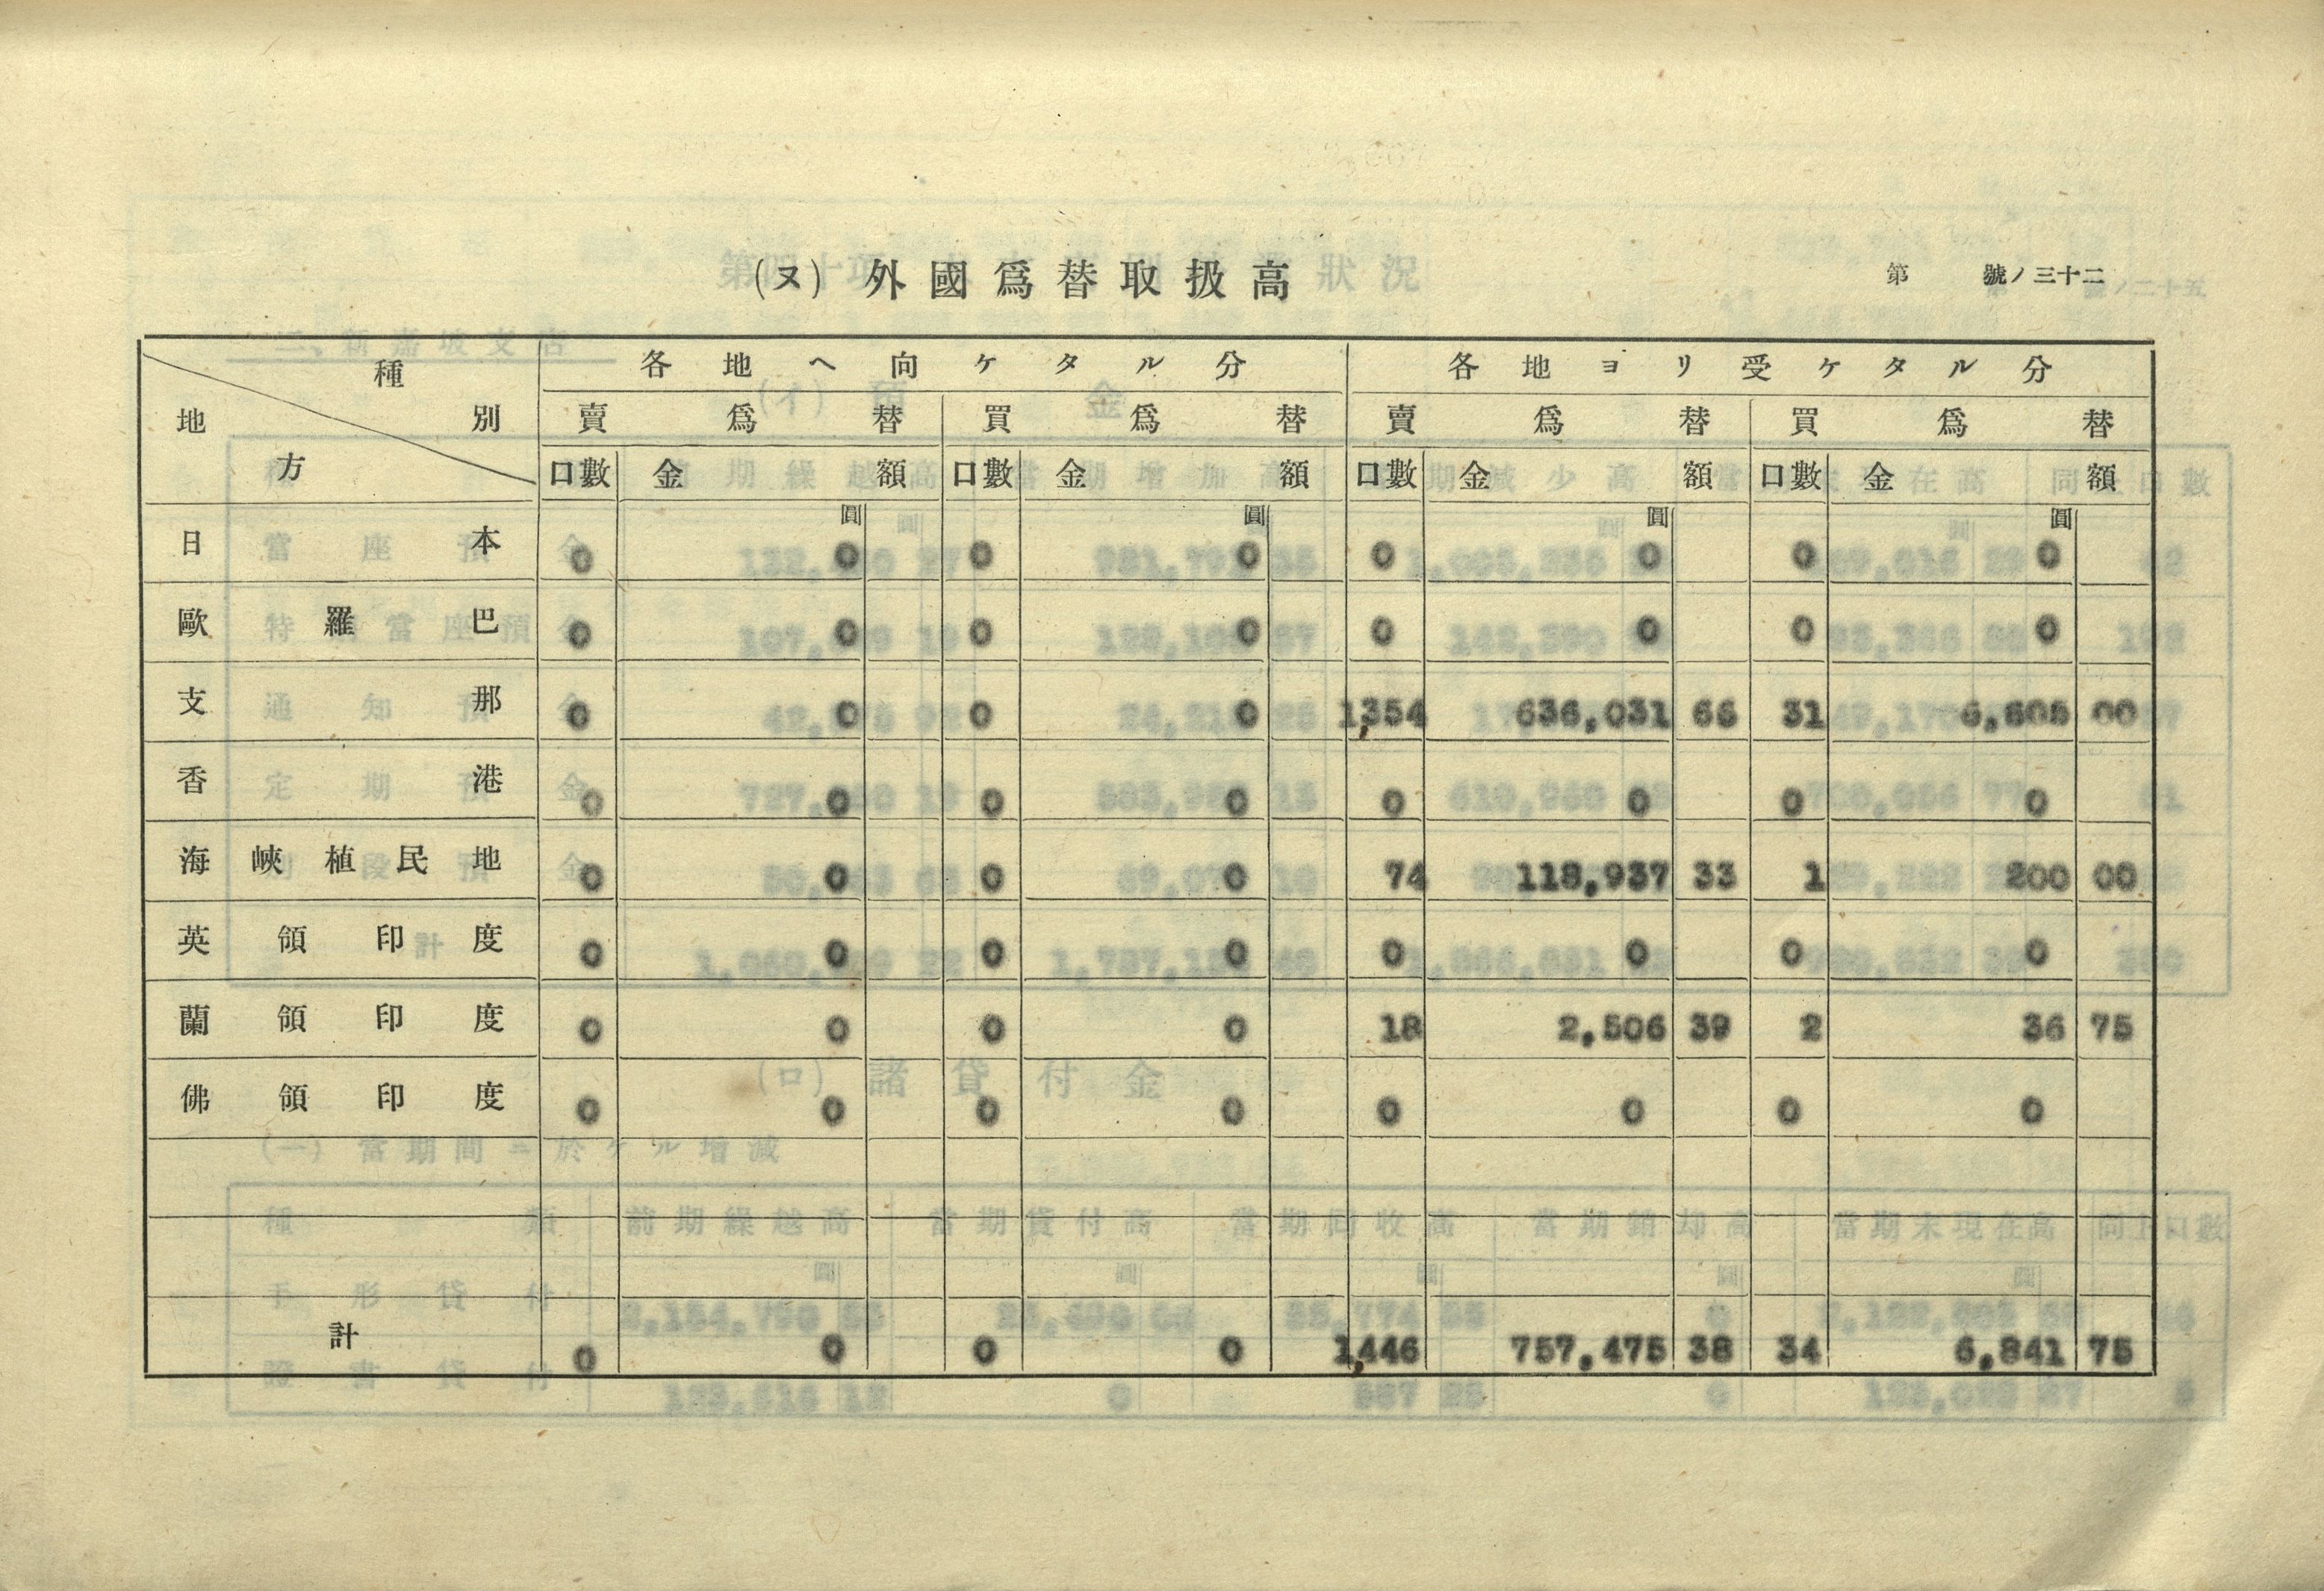 (ヌ) 外國爲替取扱高
第 號ノ三十二
種別 地方 各地ヘ向ケタル分 各地ヨリ受ケタル分
賣爲替 買爲替 賣爲替 買爲替
口數 金額 口數 金額 口數 金額 口數 金額
圓 圓 圓 圓
日本 0 0 0 0 0 0 0 0
歐羅巴 0 0 0 0 0 0 0 0
支那 0 0 0 0 1,354 636,031 66 31 6,605 00
香港 0 0 0 0 0 0 0 0
海峽植民地 0 0 0 0 74 118,937 33 1 200 00
英領印度 0 0 0 0 0 0 0 0
蘭領印度 0 0 0 0 18 2,506 39 2 36 75
佛領印度 0 0 0 0 0 0 0 0
計 0 0 0 0 1,446 757,475 38 34 6,841 75